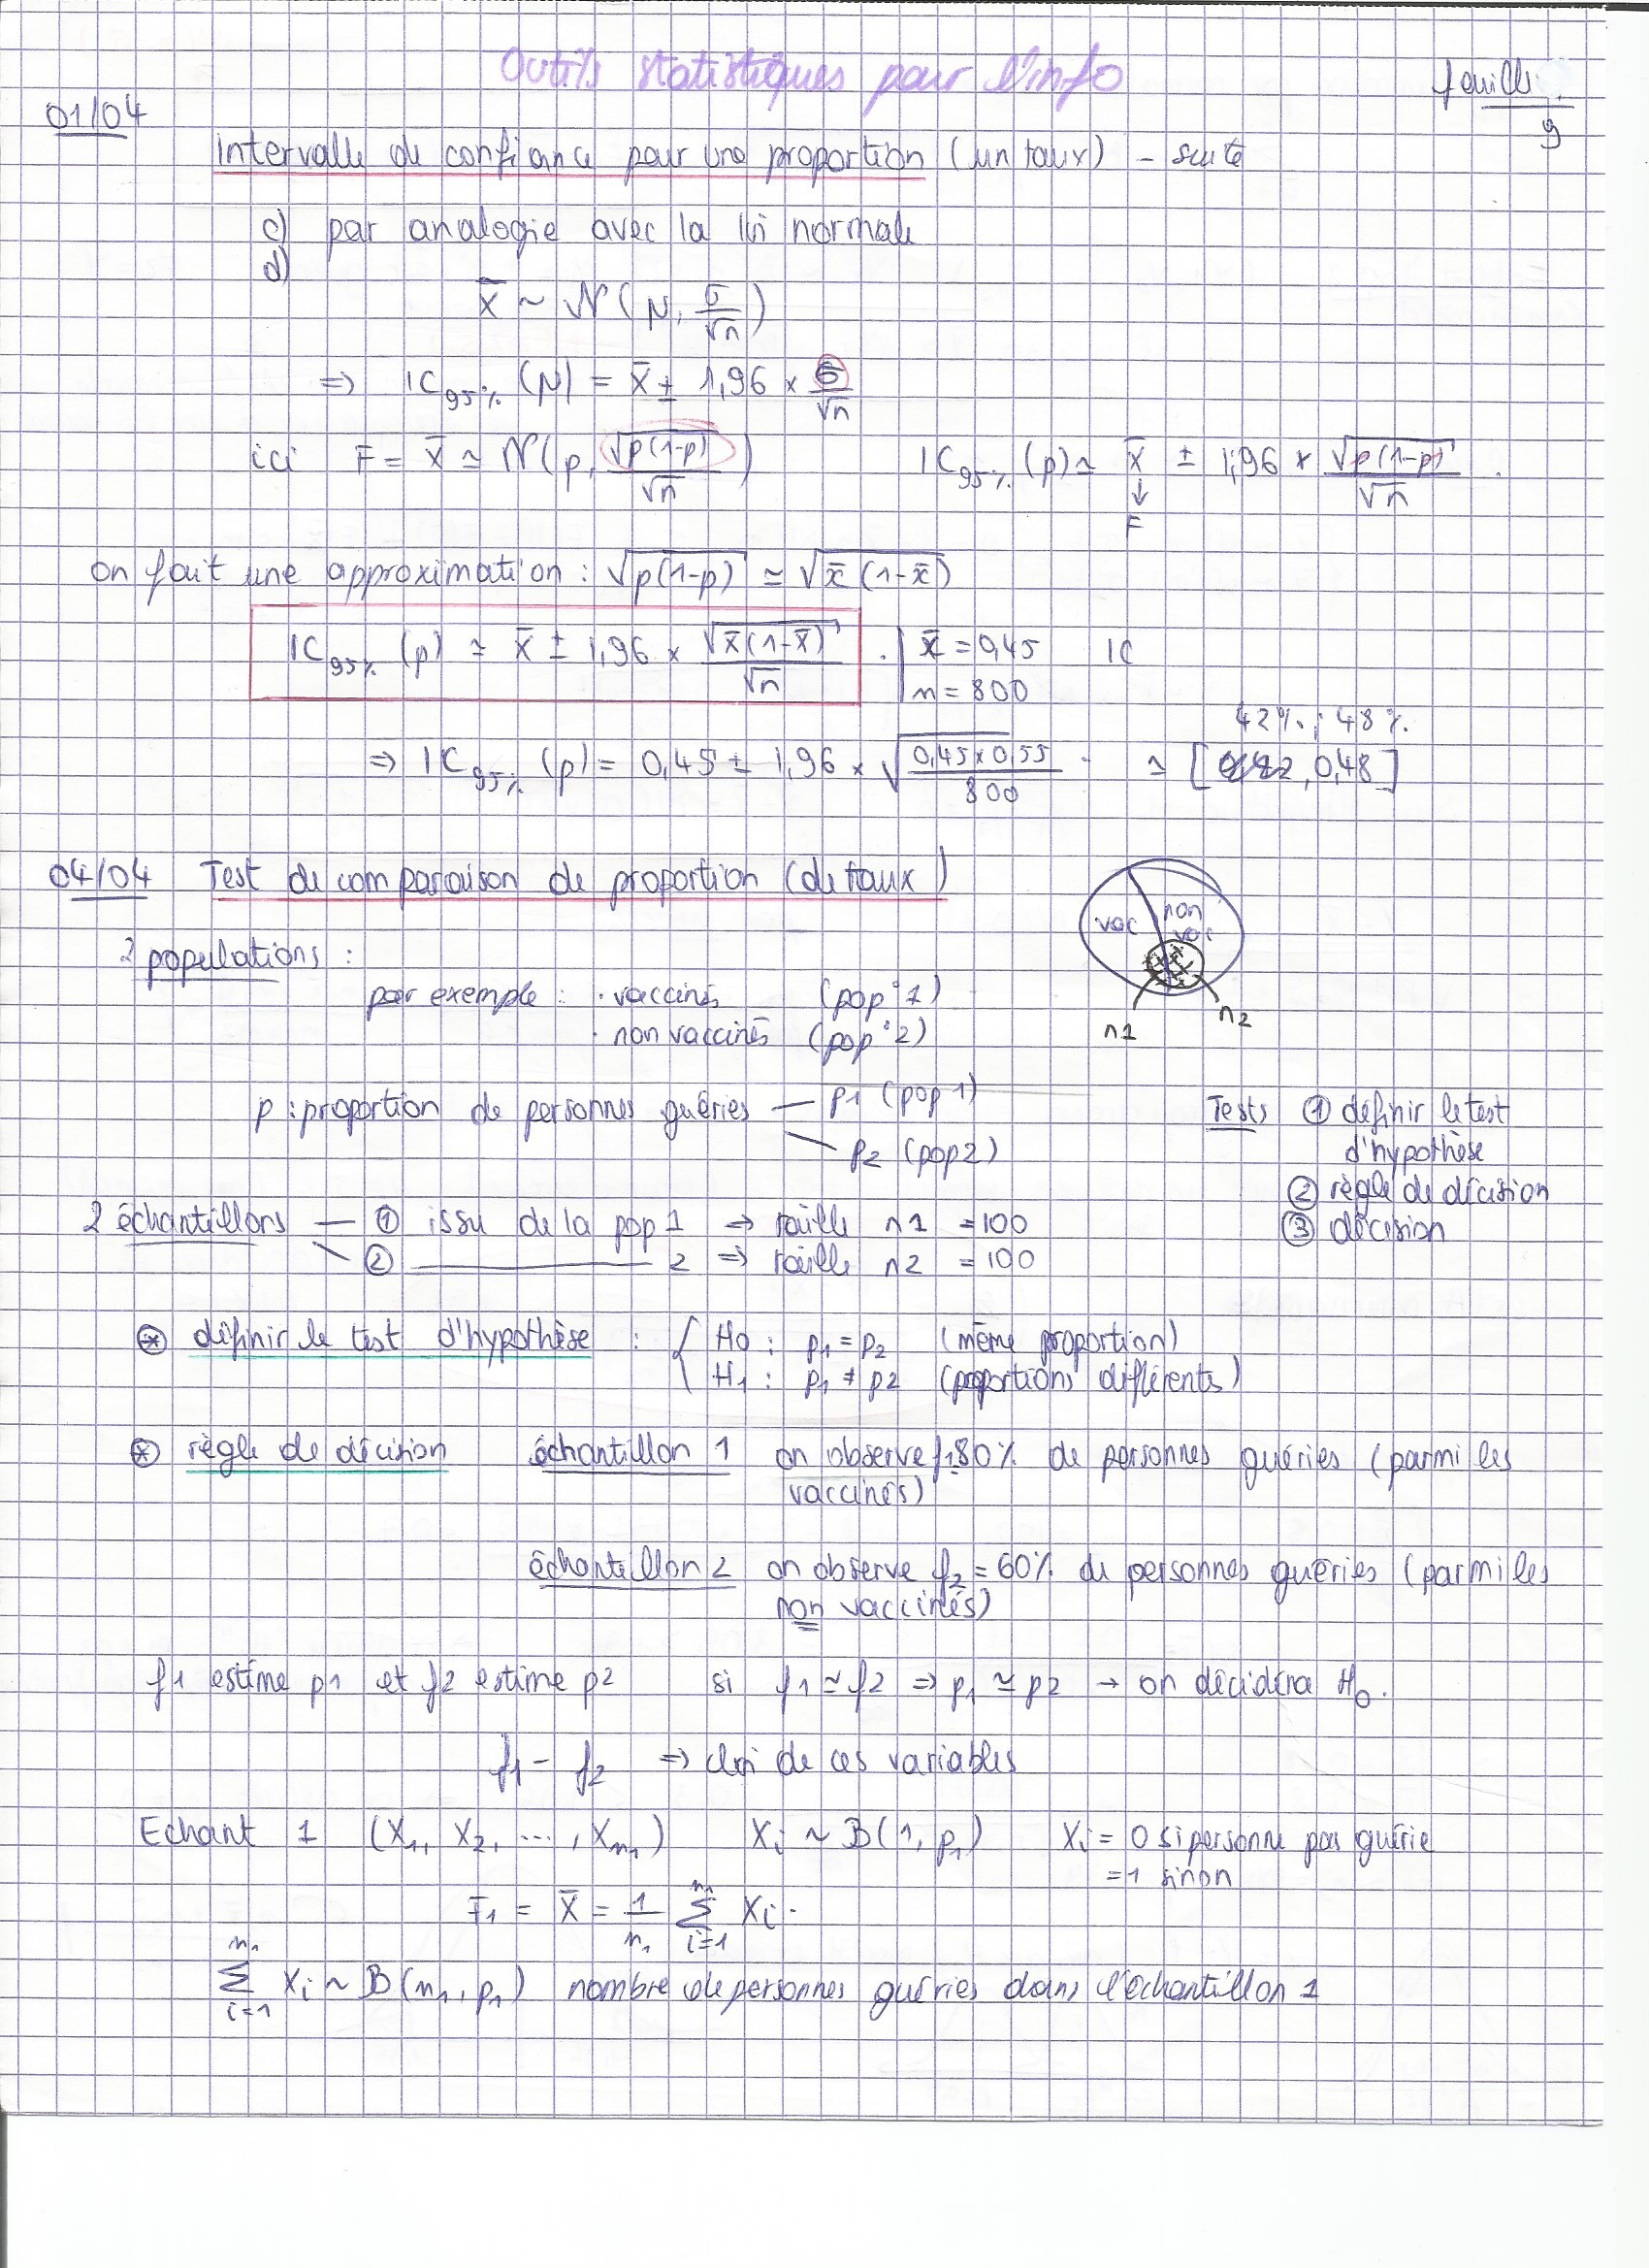 Outils statistiques pour l'info
feuille:
9
01/04
Intervalle de confiance pour une proportion (un taux) - suite
c) par analogie avec la loi normale
d)
X̄ ~ N(μ, σ/√n)
=> IC95% (μ) = X̄ ± 1,96 × σ/√n
ici F = X̄ ≃ N(p, √p(1-p)/√n) IC95% (p) ≃ X̄ ± 1,96 × √p(1-p)/√n .
↓
F
on fait une approximation : √p(1-p) ≃ √x̄(1-x̄)
IC95% (p) ≃ x̄ ± 1,96 × √x̄(1-x̄)/√n . x̄ = 0,45 IC
n = 800
42% ; 48%
=> IC95% (p) = 0,45 ± 1,96 × √0,45×0,55/800 . ≃ [ , 0,48]
04/04 Test de comparaison de proportion (de taux)
vac non vac
n1 n2
2 populations :
par exemple : · vaccinés (pop° 1)
· non vaccinés (pop° 2)
p : proportion de personnes guéries — p1 (pop 1)
p2 (pop2)
Tests ① définir le test
d'hypothèse
② règle de décision
③ décision
2 échantillons — ① issu de la pop 1 => taille n1 = 100
② ———— 2 => taille n2 = 100
⊛ définir le test d'hypothèse : { H0 : p1 = p2 (même proportion)
H1 : p1 ≠ p2 (proportions différentes)
⊛ règle de décision échantillon 1 on observe f1=80% de personnes guéries (parmi les
vaccinés)
échantillon 2 on observe f2 = 60% de personnes guéries (parmi les
non vaccinés)
f1 estime p1 et f2 estime p2 si f1 ≃ f2 => p1 ≃ p2 → on décidera H0.
f1 - f2 => loi de ces variables
Echant 1 (X1, X2, ..., Xn1) Xi ~ B(1, p1) Xi = 0 si personne pas guérie
= 1 sinon
F1 = X̄ = 1/n1 Σ(i=1, n1) Xi .
Σ(i=1, n1) Xi ~ B(n1, p1) nombre de personnes guéries dans l'échantillon 1